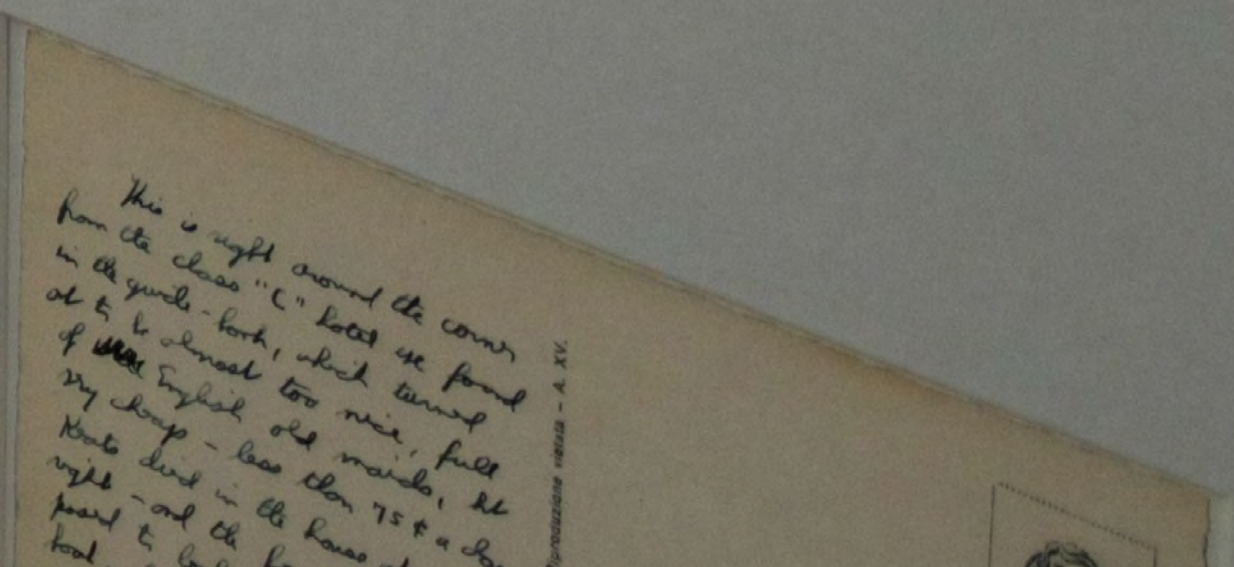 This is right around the corner
from the class "C" hotel we found
in the guide-book, which turned
out to be almost too nice, full
of English old maids, but
very cheap - less than 75¢ a day
Keats died in the house
right - and the
posed to
boat
Riproduzione vietata - A. XV.